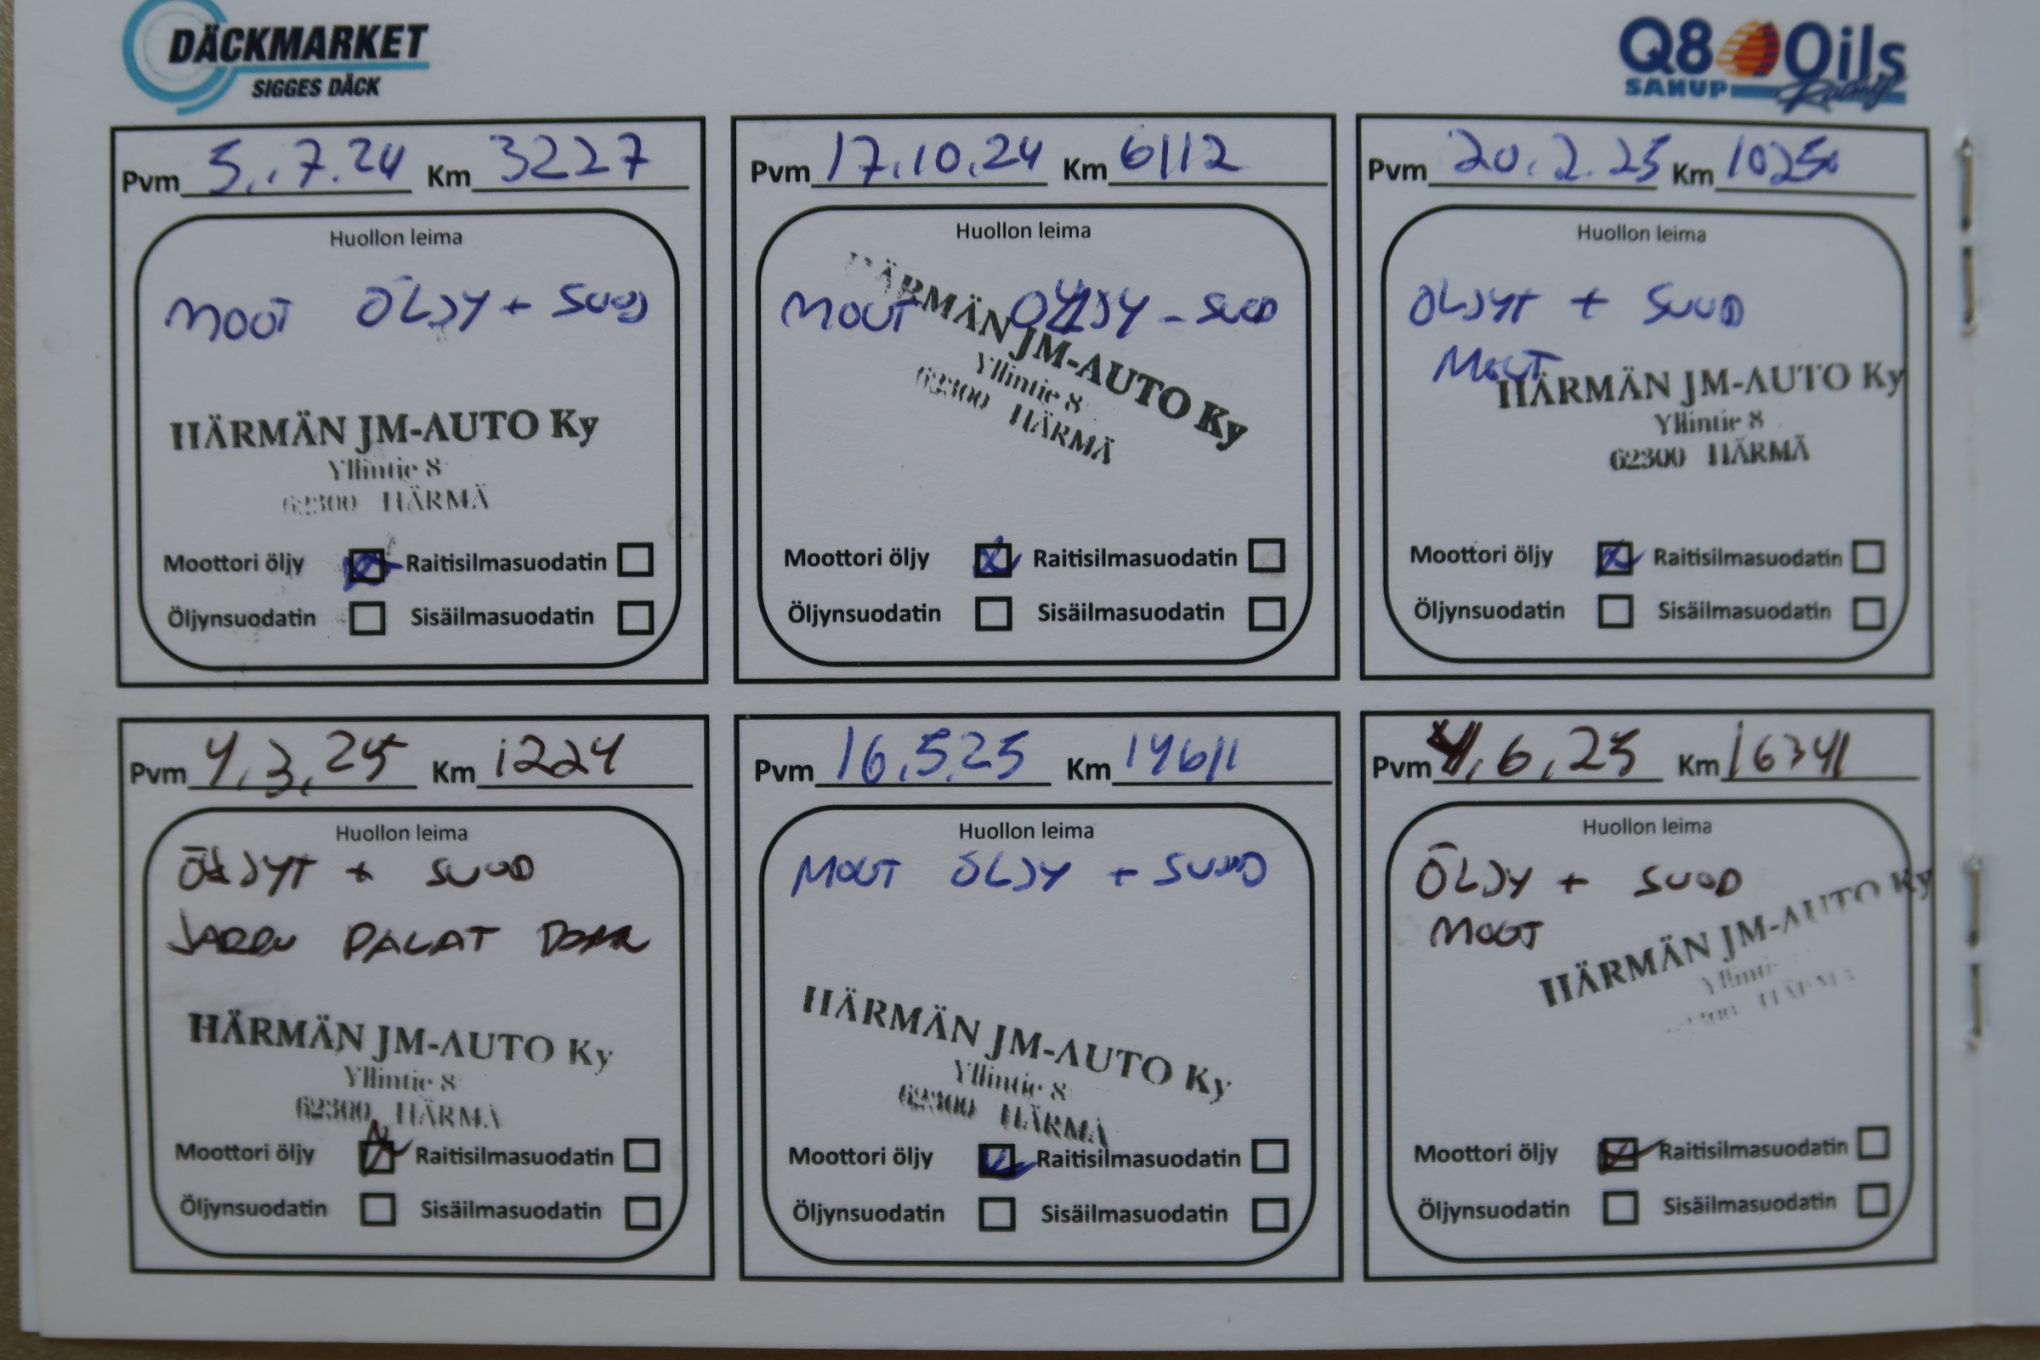 DÄCKMARKET
SIGGES DÄCK
Q8 Oils
SAHUP Racing
Pvm 5.7.24 Km 3227
Huollon leima
MOOT ÖLJY + SUOD
HÄRMÄN JM-AUTO Ky
Yllintie 8
62300 HÄRMÄ
Moottori öljy Raitisilmasuodatin
Öljynsuodatin Sisäilmasuodatin
Pvm 17.10.24 Km 6112
Huollon leima
MOOT ÖLJY - SUOD
HÄRMÄN JM-AUTO Ky
Yllintie 8
62300 HÄRMÄ
Moottori öljy Raitisilmasuodatin
Öljynsuodatin Sisäilmasuodatin
Pvm 20.2.25 Km 10250
Huollon leima
ÖLJYT + SUOD
MOOT
HÄRMÄN JM-AUTO Ky
Yllintie 8
62300 HÄRMÄ
Moottori öljy Raitisilmasuodatin
Öljynsuodatin Sisäilmasuodatin
Pvm 4.3.25 Km 1224
Huollon leima
ÖLJYT + SUOD
JARRU PALAT
HÄRMÄN JM-AUTO Ky
Yllintie 8
62300 HÄRMÄ
Moottori öljy Raitisilmasuodatin
Öljynsuodatin Sisäilmasuodatin
Pvm 16.5.25 Km 14611
Huollon leima
MOOT ÖLJY + SUOD
HÄRMÄN JM-AUTO Ky
Yllintie 8
62300 HÄRMÄ
Moottori öljy Raitisilmasuodatin
Öljynsuodatin Sisäilmasuodatin
Pvm 4.6.25 Km 16341
Huollon leima
ÖLJY + SUOD
MOOT
HÄRMÄN JM-AUTO Ky
Yllintie
HÄRMÄ
Moottori öljy Raitisilmasuodatin
Öljynsuodatin Sisäilmasuodatin